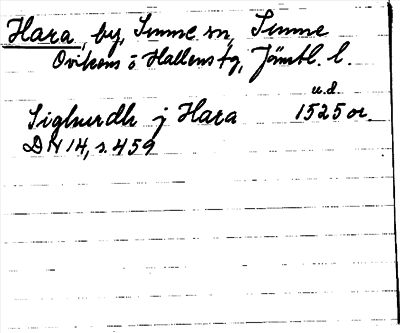 Hara, by, Sunne sn, Sunne
Ovikens o Hallens tg, Jämtl. l.
u.d.
Sighurdh j Hara 1525 or.
DN 14, s. 459